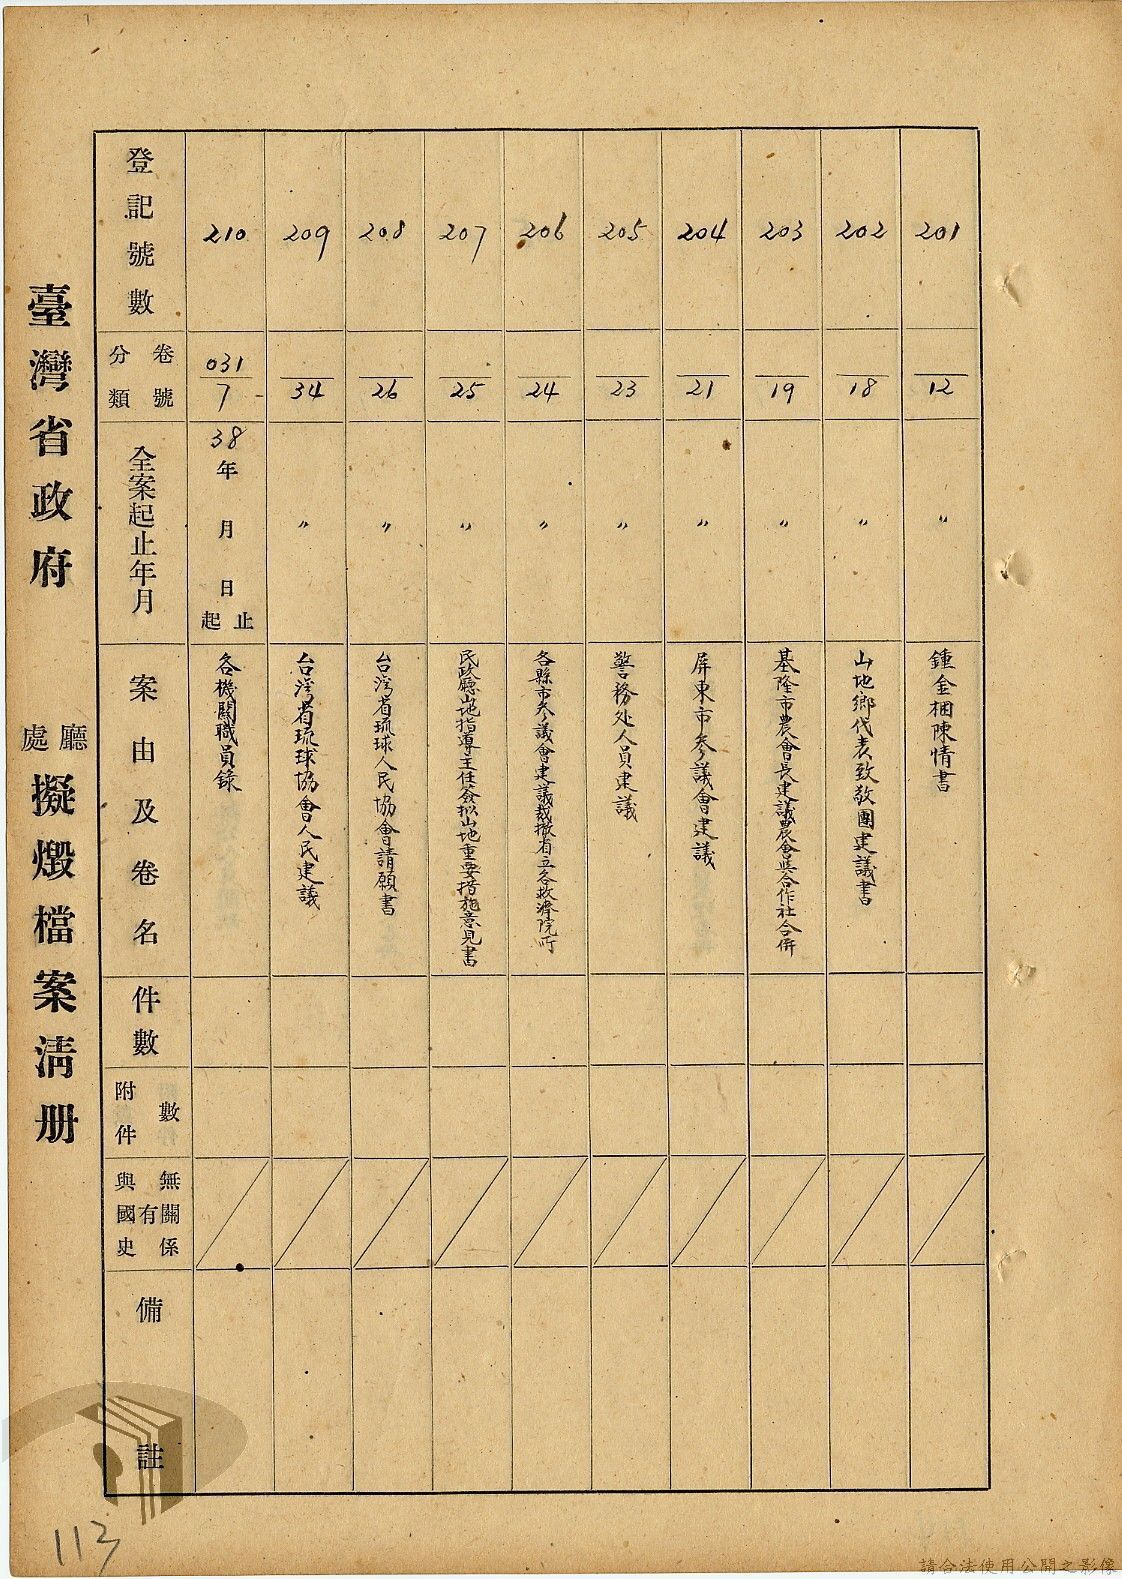 臺灣省政府 廳處 擬燬檔案清册
登記號數
210
209
208
207
206
205
204
203
202
201
分類卷號
031/7
34
26
25
24
23
21
19
18
12
全案起止年月
38年 月 日起止
〃
〃
〃
〃
〃
〃
〃
〃
〃
案由及卷名
各機關職員錄
台湾省琉球協會人民建議
台湾省琉球人民協會請願書
民政廳山地指導主任簽拟山地重要措施意見書
各縣市参議會建議裁撤省立各救濟院所
警務处人員建議
屏東市参議會建議
基隆市農會長建議農會與合作社合併
山地鄉代表致敬團建議書
鍾金梱陳情書
件數
附件數
與國史有無關係
備註
113
請合法使用公開之影像